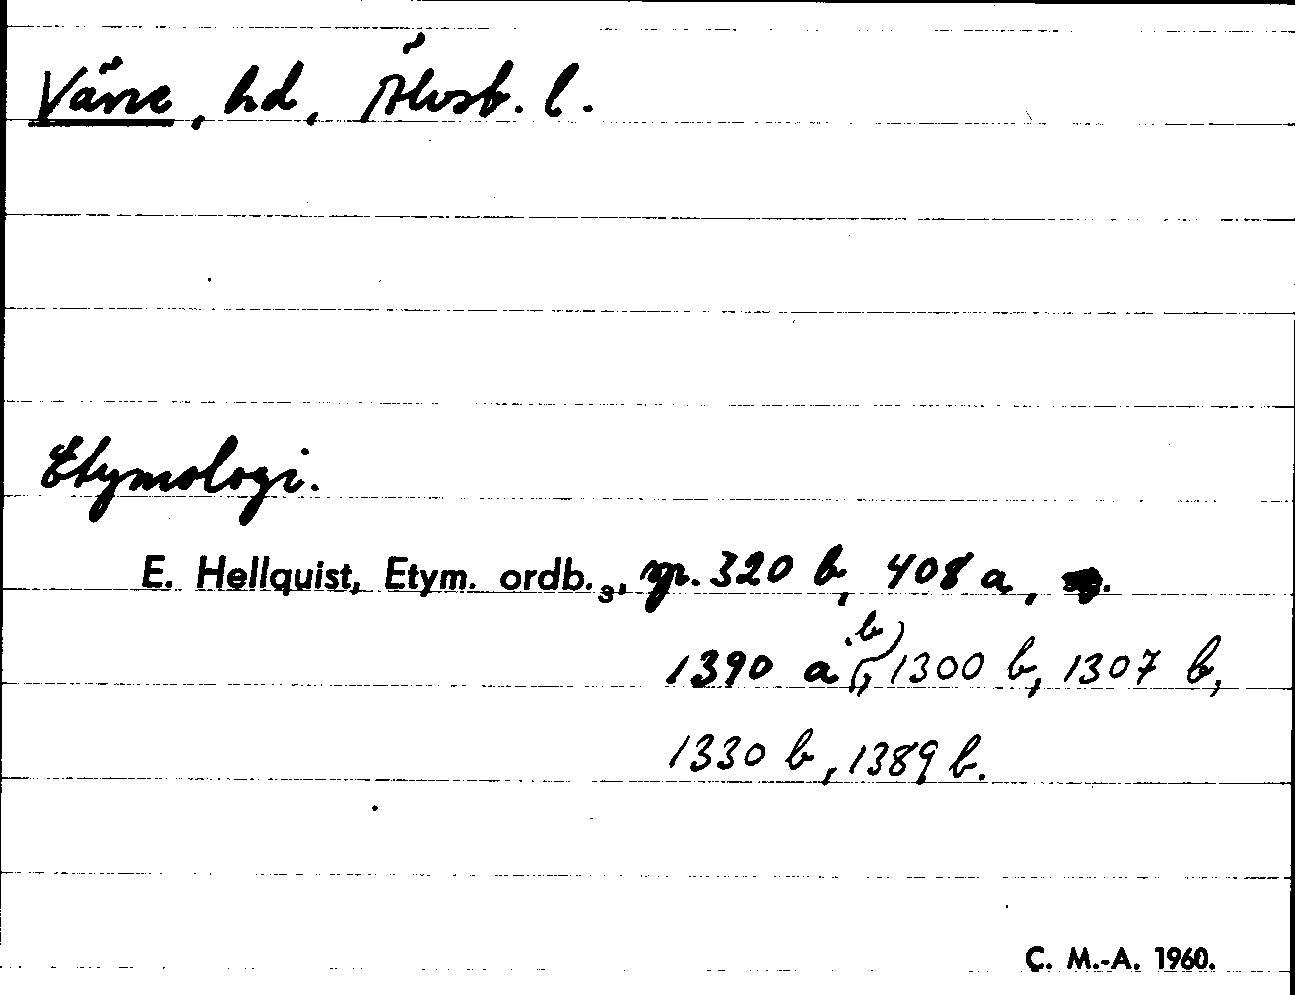 Väne, hd, Älvsb. l.
Etymologi.
E. Hellquist, Etym. ordb.₃, sp. 320 b, 408 a,
1390 a (, b), 1300 b, 1307 b,
1330 b, 1389 b.
C. M.-A. 1960.